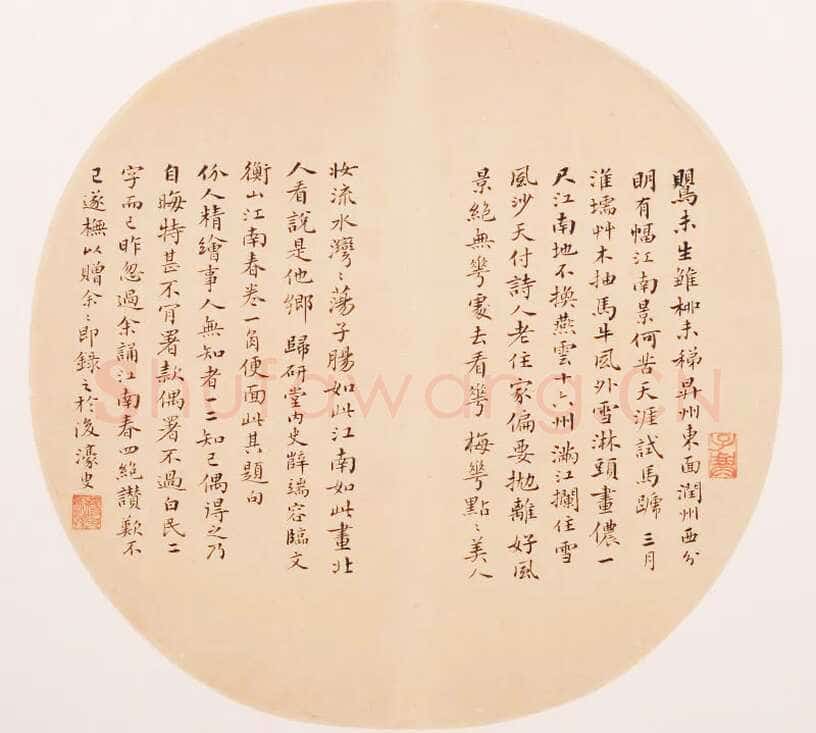 鸎未生雛柳未稊昇州東面潤州西分
明有幅江南景何苦天涯試馬蹏 三月
淮壖艸木抽馬牛風外雪淋頭畫儂一
尺江南地不換燕雲十六州 滿江攔住雪
風沙天付詩人老住家偏要抛離好風
景絕無華處去看華 梅華點〻美人
妝流水灣〻蕩子腸如此江南如此畫北
人看說是他鄉 歸研堂內史薛端容臨文
衡山江南春卷一角便面此其題句
份人精繪事人無知者一二知己偶得之乃
自晦特甚不肎署款偶署不過白民二
字而已昨忽過余誦江南春四絕讚歎不
已遂橅以贈余〻即錄之於後濠叟
Shufawang.CN